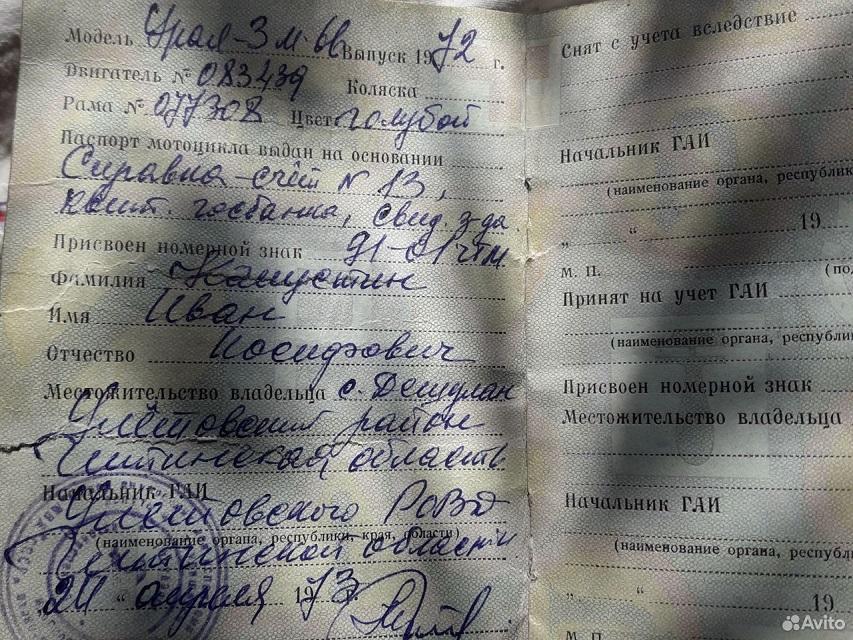 Модель Урал-3 м-66 Выпуск 1972 г.
Двигатель № 083439 Коляска
Рама № 077308 Цвет голубой
Паспорт мотоцикла выдан на основании
Справка-счёт № 13,
квит. госбанка, свид. з-да
Присвоен номерной знак 91-01 чтм
Фамилия Капустин
Имя Иван
Отчество Иосифович
Местожительство владельца с. Дешулан
Улётовский район
Читинская область
Начальник ГАИ
Улётовского РОВД
(наименование органа, республики, края, области)
Читинской области
24 " апреля 1973
Снят с учета вследствие
Начальник ГАИ
(наименование органа, республик
„ “ 19
М. П. (по
Принят на учет ГАИ
(наименование органа, республи
Присвоен номерной знак
Местожительство владельца
Начальник ГАИ
(наименование органа, республ
„ “ 19
М. П.
Avito